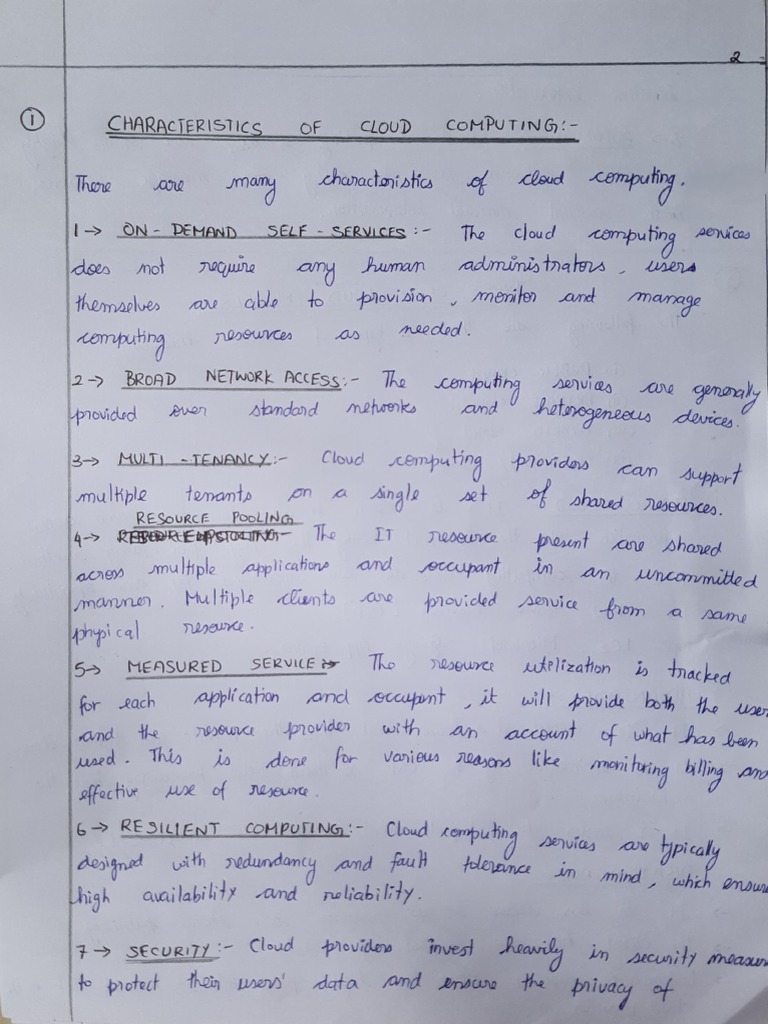 2
① CHARACTERISTICS OF CLOUD COMPUTING:-
There are many characteristics of cloud computing.
1→ ON-DEMAND SELF-SERVICES:- The cloud computing services
does not require any human administrators, users
themselves are able to provision, monitor and manage
computing resources as needed.
2→ BROAD NETWORK ACCESS:- The computing services are generally
provided over standard networks and heterogeneous devices.
3→ MULTI-TENANCY:- Cloud computing providers can support
multiple tenants on a single set of shared resources.
RESOURCE POOLING
4→ The IT resource present are shared
across multiple applications and occupant in an uncommitted
manner. Multiple clients are provided service from a same
physical resource.
5→ MEASURED SERVICE:→ The resource utilization is tracked
for each application and occupant, it will provide both the user
and the resource provider with an account of what has been
used. This is done for various reasons like monitoring billing and
effective use of resource.
6→ RESILIENT COMPUTING:- Cloud computing services are typically
designed with redundancy and fault tolerance in mind, which ensure
high availability and reliability.
7→ SECURITY:- Cloud providers invest heavily in security measur
to protect their users' data and ensure the privacy of